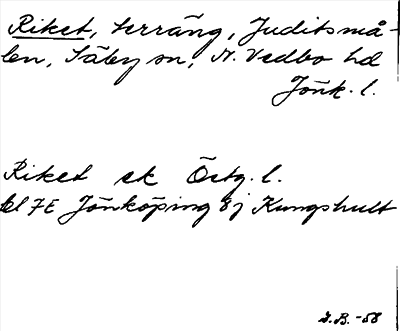 Riket, terräng, Juditsmå-
len, Säby sn, N. Vedbo hd
Jönk. l.
Riket ek Östg. l.
bl 7E Jönköping 8j Kungshult
J.B. -58